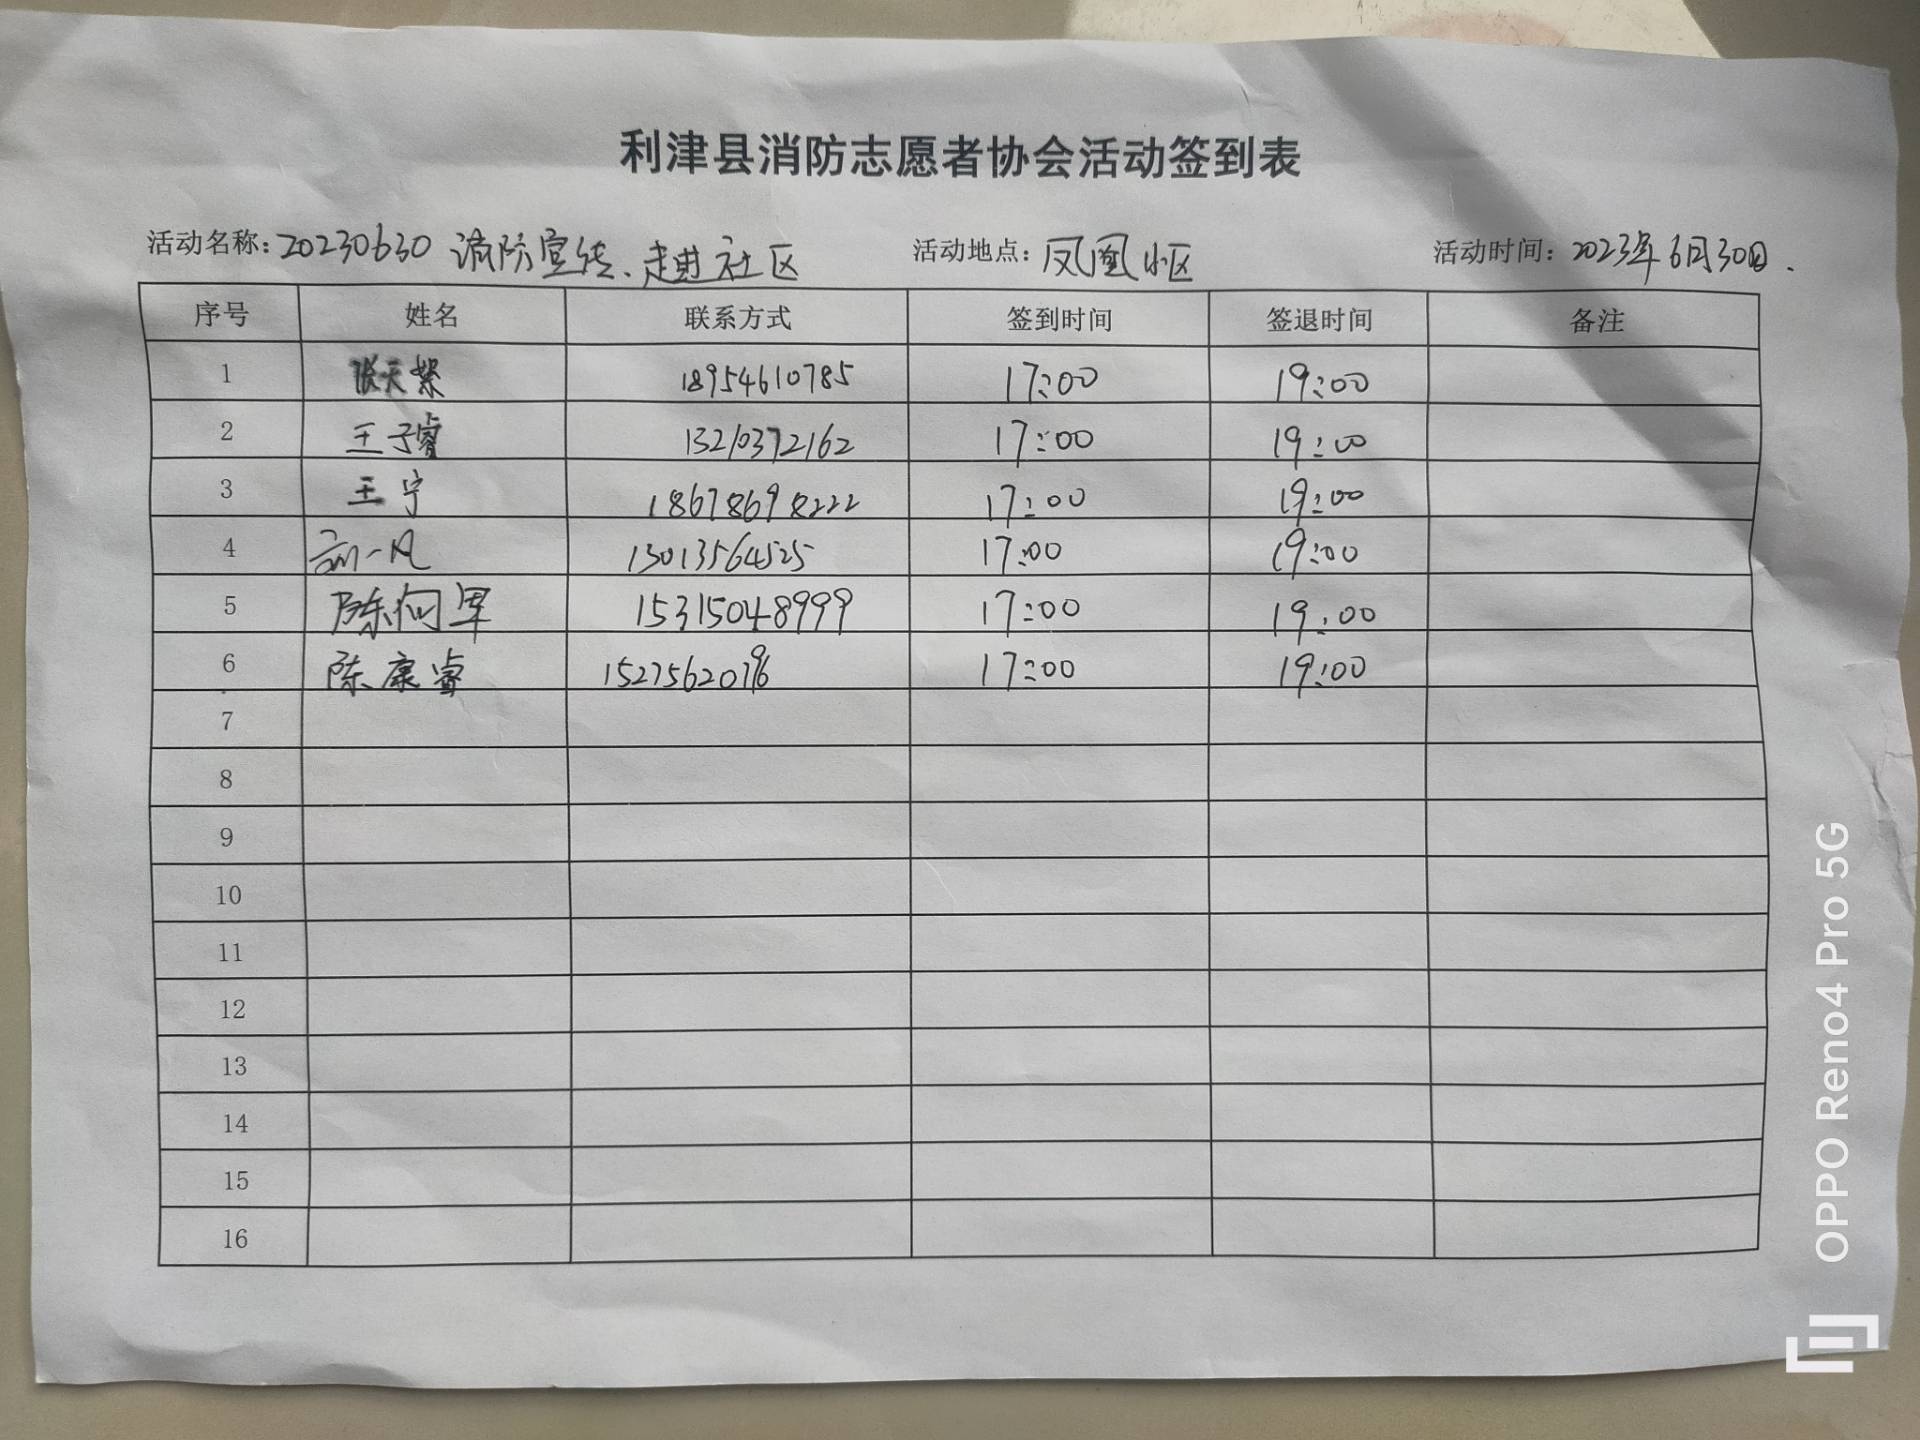 利津县消防志愿者协会活动签到表
活动名称：20230630 消防宣传、走进社区 活动地点：凤凰小区 活动时间：2023年6月30日.
序号 姓名 联系方式 签到时间 签退时间 备注
1 张天 18954610785 17:00 19:00
2 王子睿 13210372162 17:00 19:00
3 王宁 18678698222 17:00 19:00
4 一凡 13013564525 17:00 19:00
5 陈向军 15315048999 17:00 19:00
6 陈康睿 15275620796 17:00 19:00
7
8
9
10
11
12
13
14
15
16
OPPO Reno4 Pro 5G